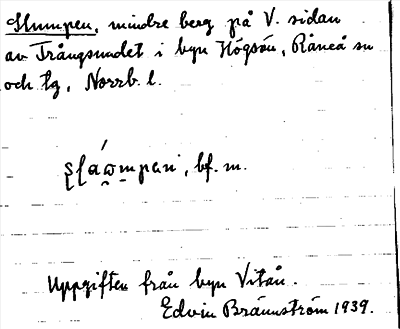 Slumpen, mindre berg på V. sidan
av Trångsundet i byn Högsön, Råneå sn
och tg, Norrb. l.
bf. m.
Uppgiften från byn Vitån.
Edvin Brännström 1939.